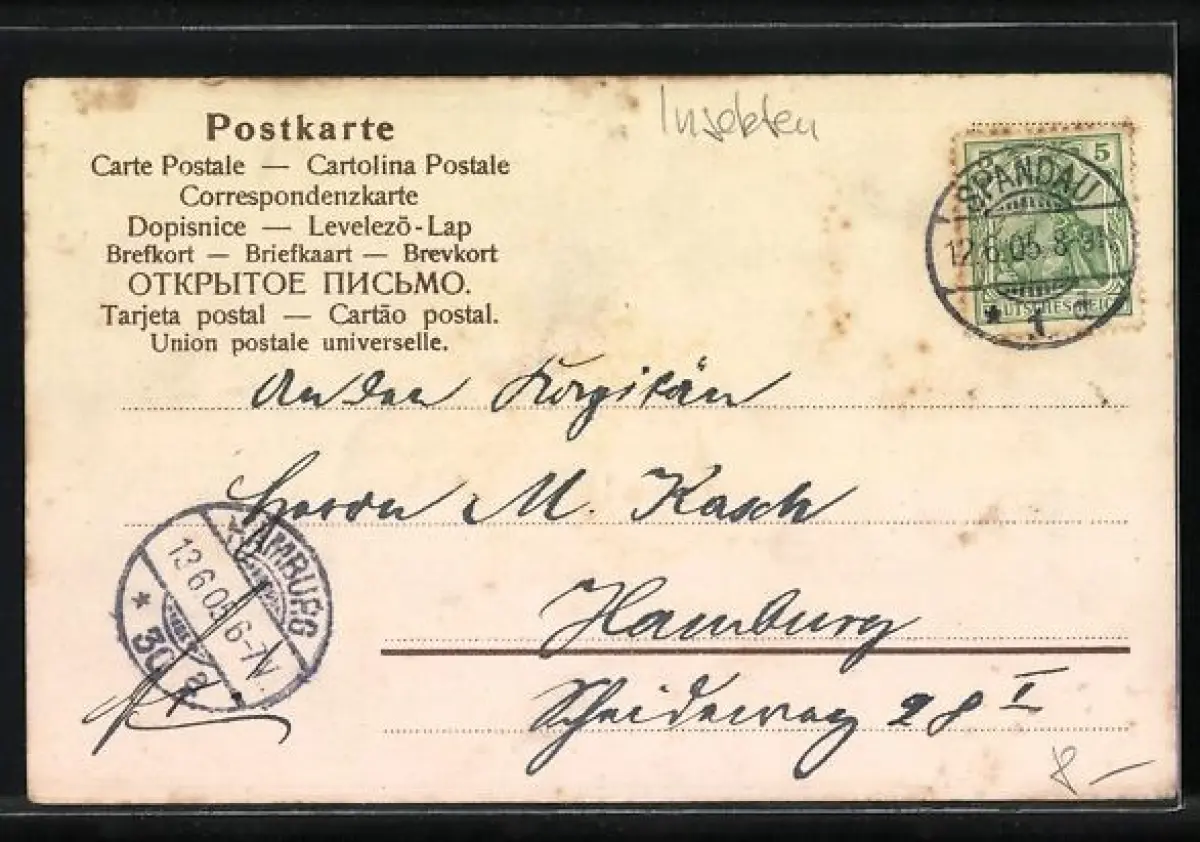 Insekten
Postkarte
Carte Postale — Cartolina Postale
Correspondenzkarte
Dopisnice — Levelezō-Lap
Brefkort — Briefkaart — Brevkort
ОТКРЫТОЕ ПИСЬМО.
Tarjeta postal — Cartão postal.
Union postale universelle.
5
SPANDAU
12.6.05. 8-9
* 1
An den
Herrn M. Kasch
Hamburg
Scheideweg 28 I
HAMBURG
13.6.05. 6-7V.
* 30 a
8 —